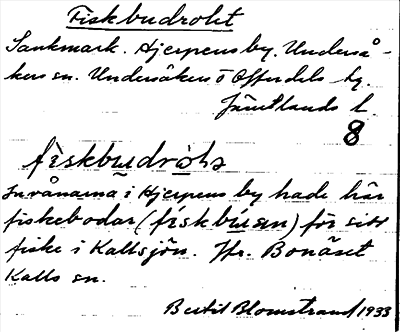 Fiskbudroht
Sankmark. Hjerpens by. Underså-
kers sn. Undersåkers o Offerdals tg.
Jämtlands l.
8
fiskbudròhs
Invånarna i Hjerpens by hade här
fiskebodar (fiskbúan) för sitt
fiske i Kallsjön. Jfr. Bonäset
Kalls sn.
Bertil Blomstrand 1933